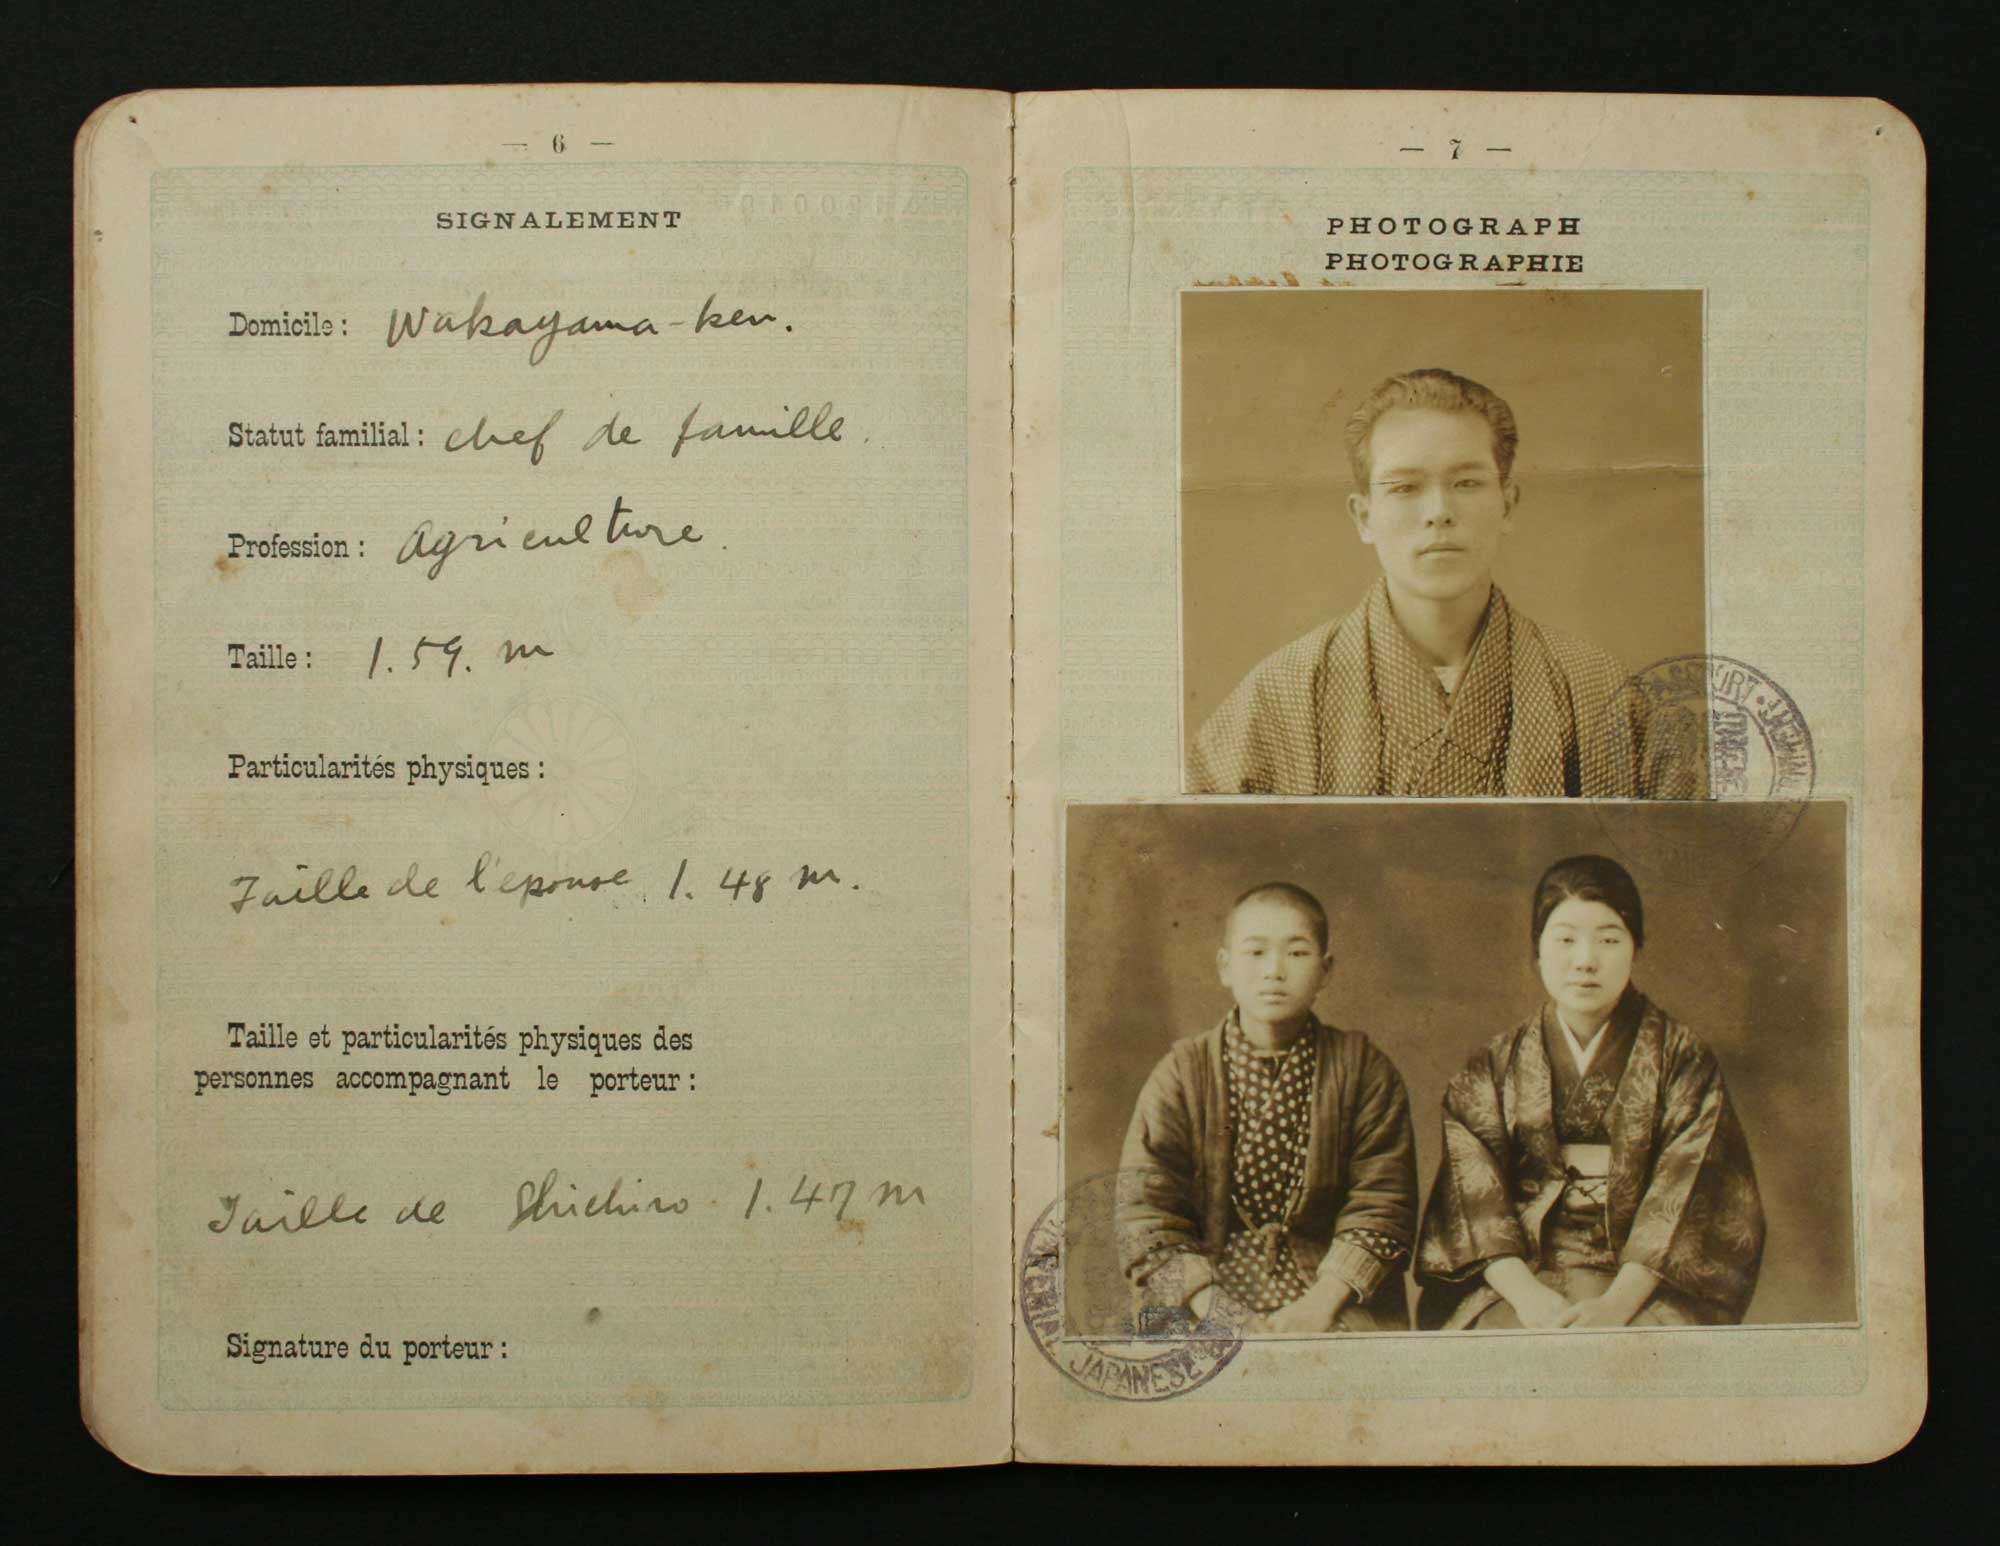 — 6 —
SIGNALEMENT
Domicile : Wakayama-ken.
Statut familial : chef de famille.
Profession : Agriculture.
Taille : 1.59. m
Particularités physiques :
Taille de l'épouse 1.48 m.
Taille et particularités physiques des
personnes accompagnant le porteur :
Taille de Shichiro 1.47 m
Signature du porteur :
— 7 —
PHOTOGRAPH
PHOTOGRAPHIE
JAPANESE